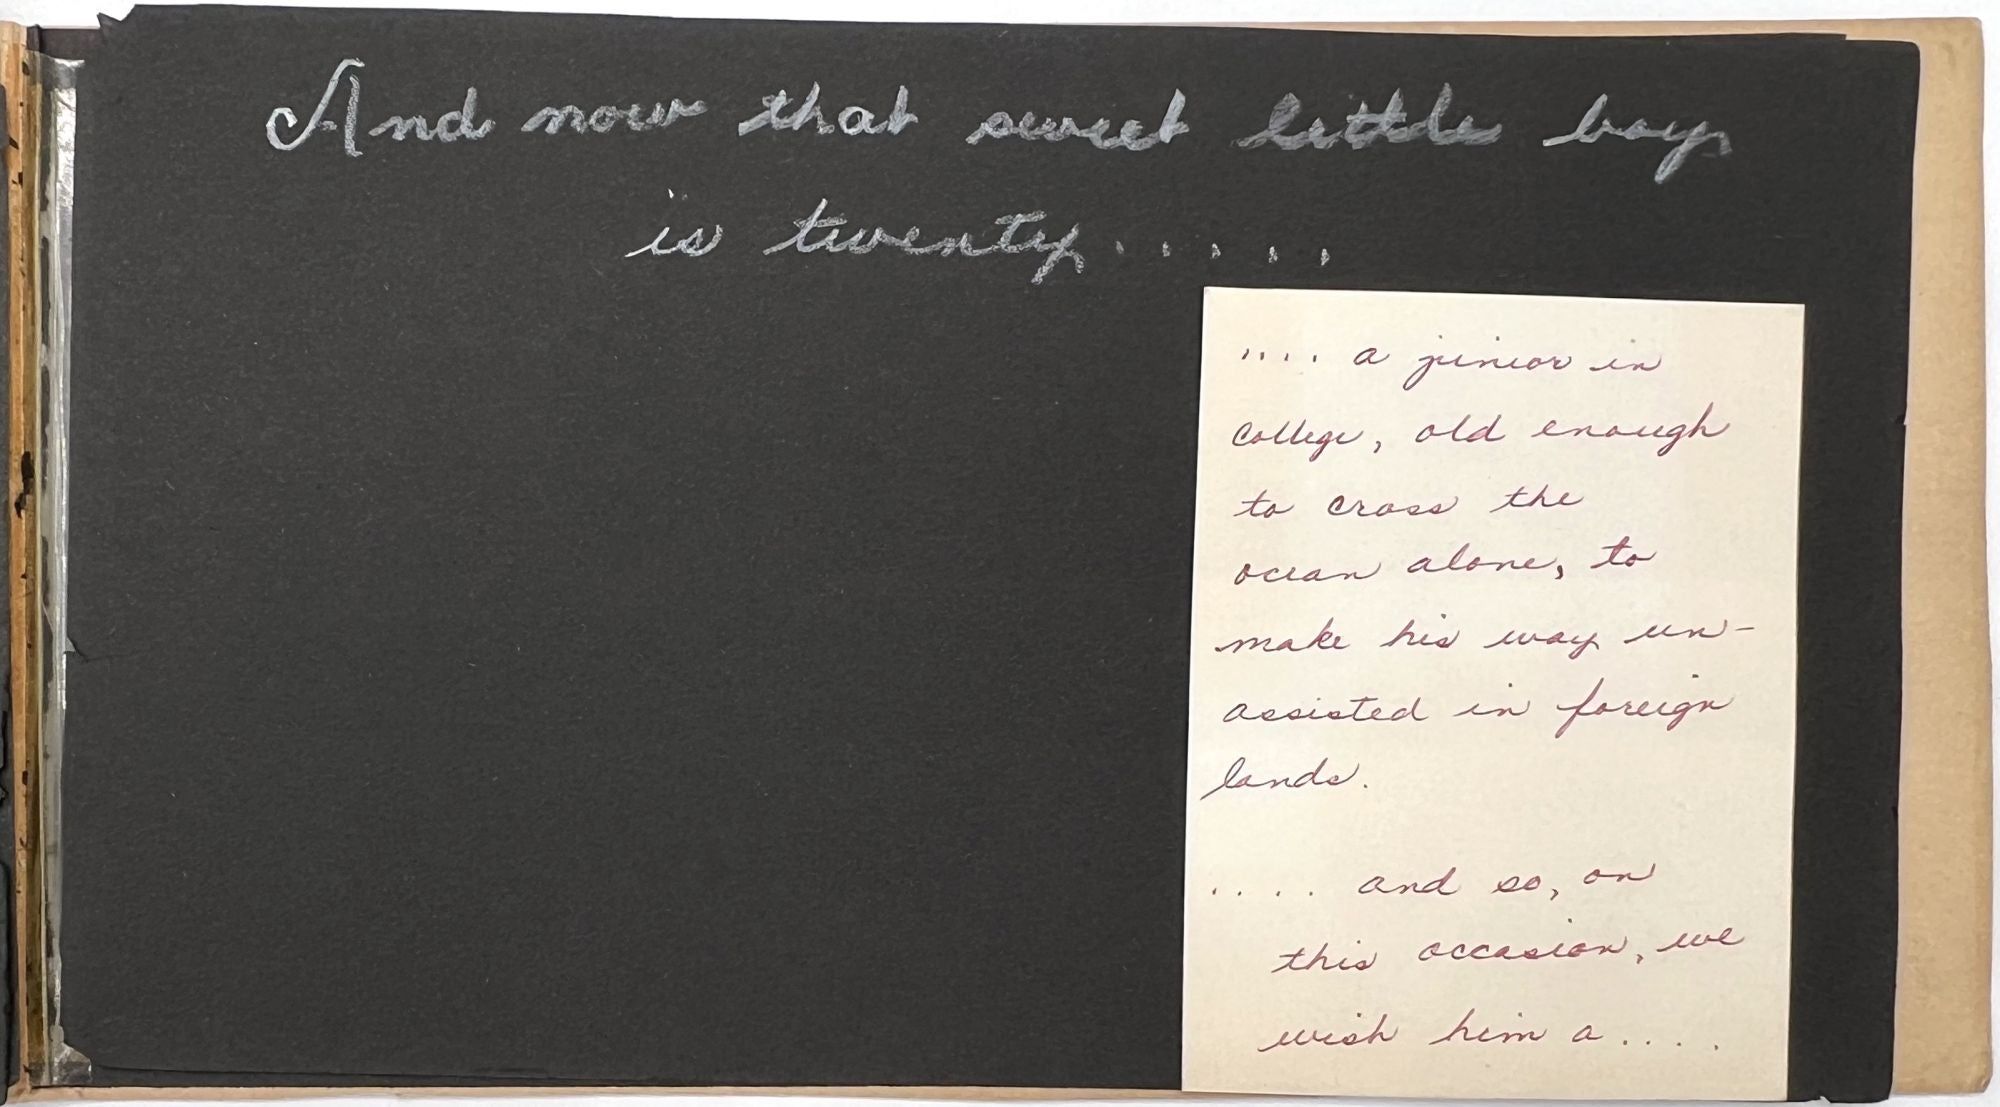 And now that sweet little boy
is twenty.....
.... a junior in
college, old enough
to cross the
ocean alone, to
make his way un-
assisted in foreign
lands.
.... and so, on
this occasion, we
wish him a ....